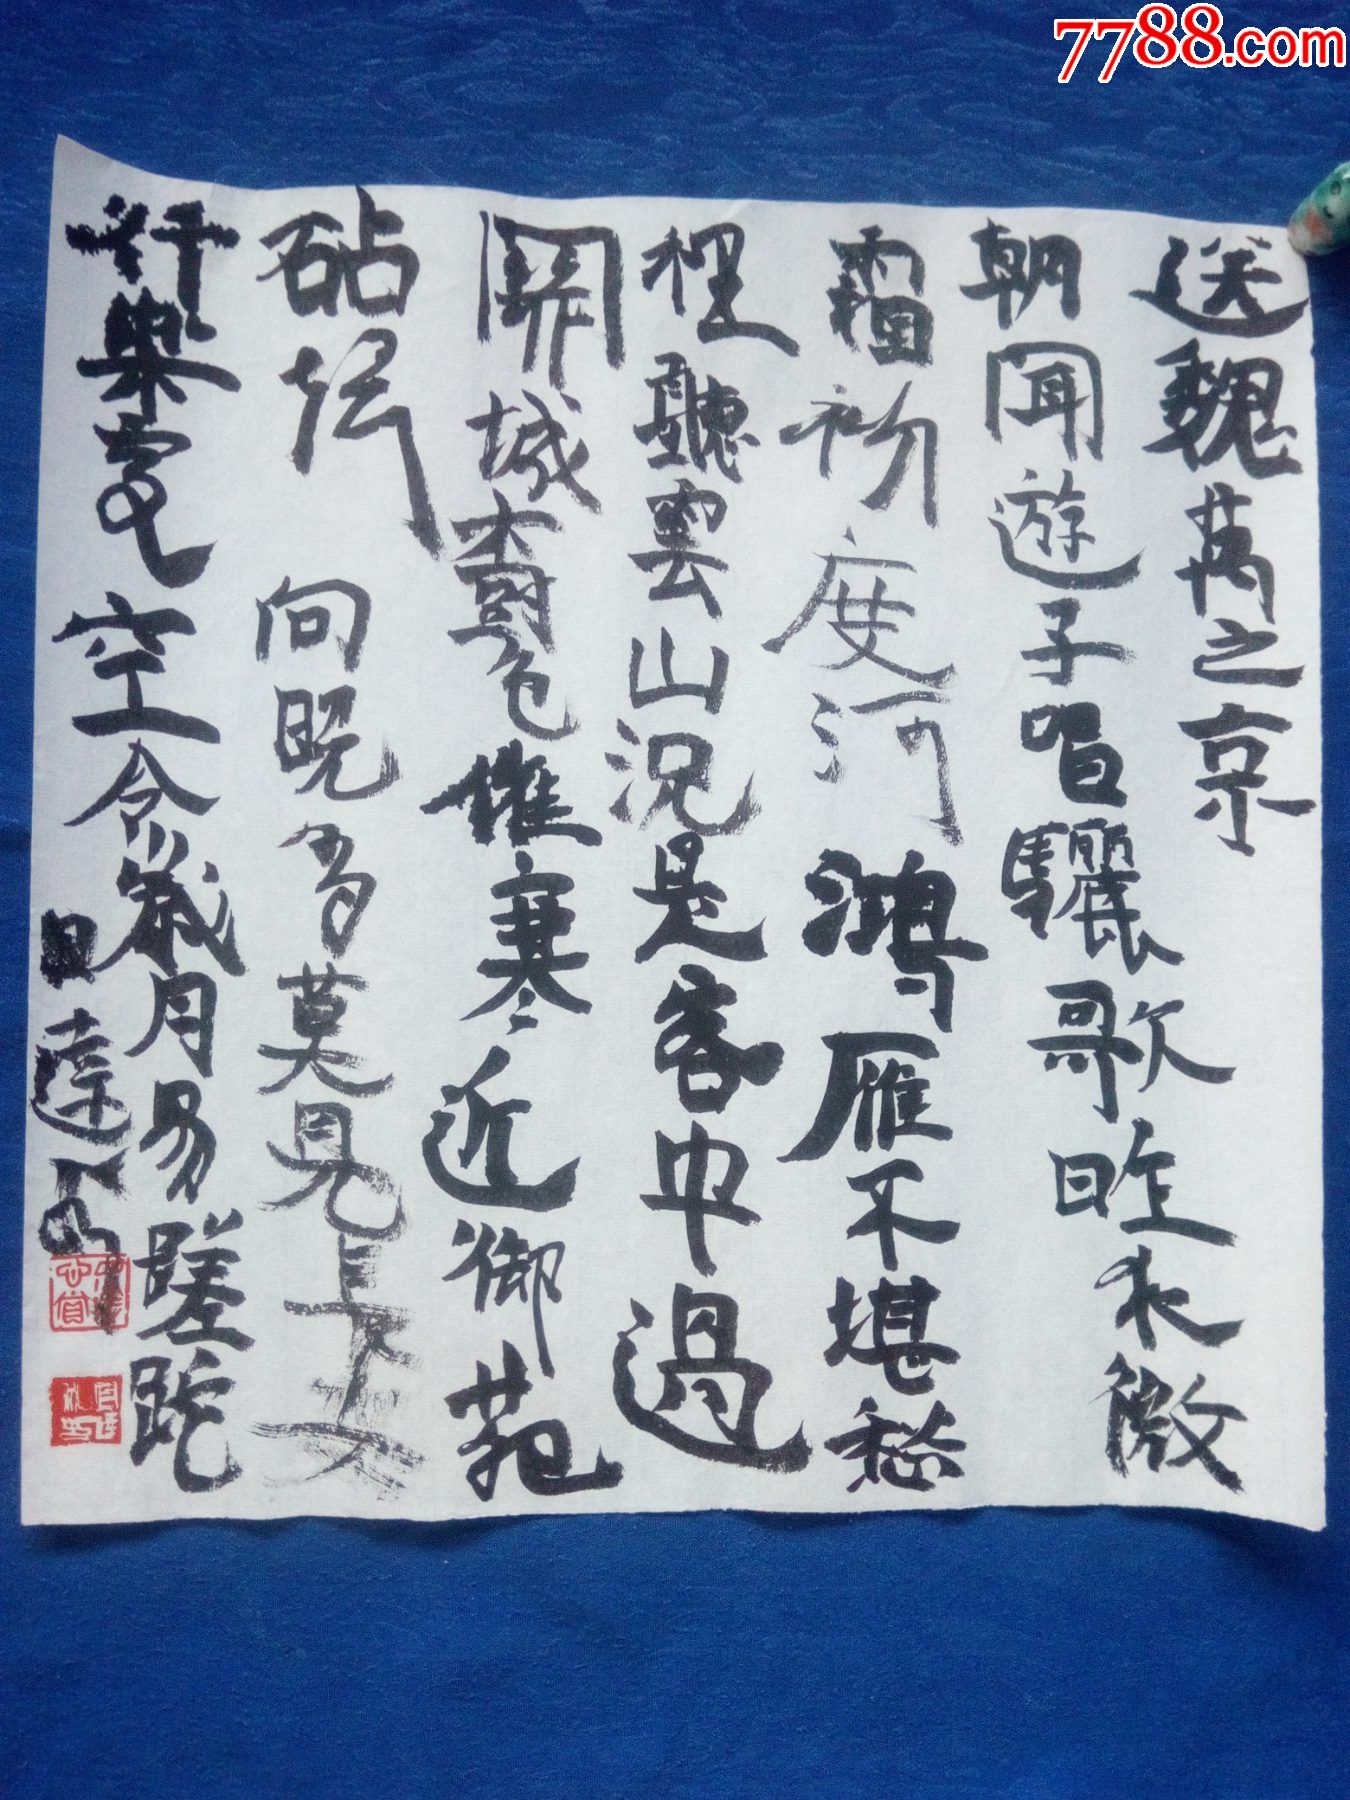 7788.com
送魏萬之京
朝聞遊子唱驪歌昨夜微
霜初度河鴻雁不堪愁
裡聽雲山況是客中過
關城樹色催寒近御苑
砧聲向晚多莫見長安
行樂處空令歲月易蹉跎